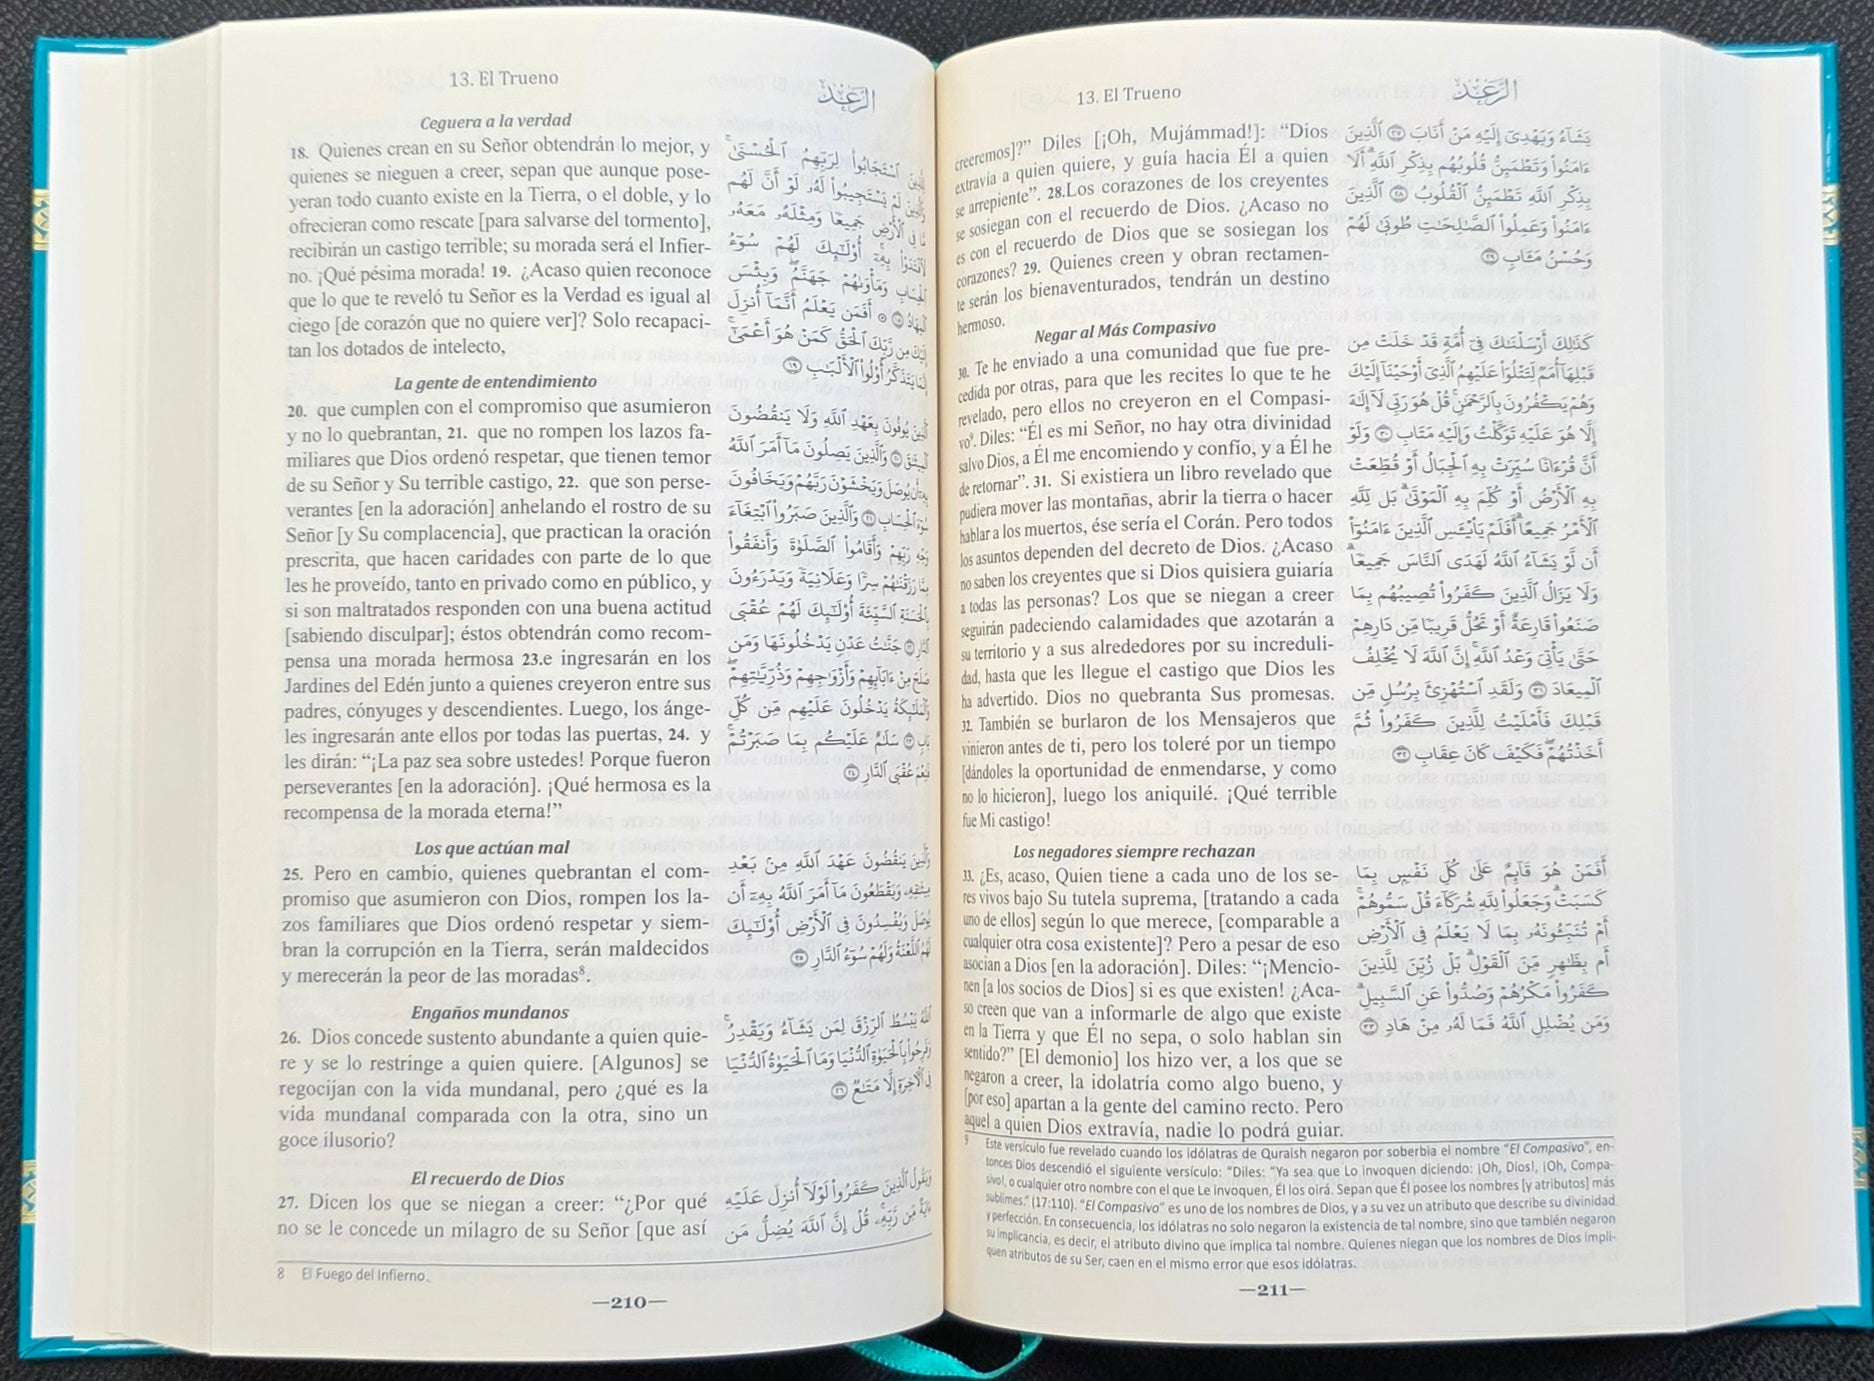 13. El Trueno
الرَّعْد
Ceguera a la verdad
18. Quienes crean en su Señor obtendrán lo mejor, y
quienes se nieguen a creer, sepan que aunque pose-
yeran todo cuanto existe en la Tierra, o el doble, y lo
ofrecieran como rescate [para salvarse del tormento],
recibirán un castigo terrible; su morada será el Infier-
no. ¡Qué pésima morada! 19. ¿Acaso quien reconoce
que lo que te reveló tu Señor es la Verdad es igual al
ciego [de corazón que no quiere ver]? Solo recapaci-
tan los dotados de intelecto,
La gente de entendimiento
20. que cumplen con el compromiso que asumieron
y no lo quebrantan, 21. que no rompen los lazos fa-
miliares que Dios ordenó respetar, que tienen temor
de su Señor y Su terrible castigo, 22. que son perse-
verantes [en la adoración] anhelando el rostro de su
Señor [y Su complacencia], que practican la oración
prescrita, que hacen caridades con parte de lo que
les he proveído, tanto en privado como en público, y
si son maltratados responden con una buena actitud
[sabiendo disculpar]; éstos obtendrán como recom-
pensa una morada hermosa 23.e ingresarán en los
Jardines del Edén junto a quienes creyeron entre sus
padres, cónyuges y descendientes. Luego, los ánge-
les ingresarán ante ellos por todas las puertas, 24. y
les dirán: “¡La paz sea sobre ustedes! Porque fueron
perseverantes [en la adoración]. ¡Qué hermosa es la
recompensa de la morada eterna!”
Los que actúan mal
25. Pero en cambio, quienes quebrantan el com-
promiso que asumieron con Dios, rompen los la-
zos familiares que Dios ordenó respetar y siem-
bran la corrupción en la Tierra, serán maldecidos
y merecerán la peor de las moradas⁸.
Engaños mundanos
26. Dios concede sustento abundante a quien quie-
re y se lo restringe a quien quiere. [Algunos] se
regocijan con la vida mundanal, pero ¿qué es la
vida mundanal comparada con la otra, sino un
goce ilusorio?
El recuerdo de Dios
27. Dicen los que se niegan a creer: “¿Por qué
no se le concede un milagro de su Señor [que así
لِلَّذِينَ ٱسْتَجَابُوا۟ لِرَبِّهِمُ ٱلْحُسْنَىٰ ۚ
وَٱلَّذِينَ لَمْ يَسْتَجِيبُوا۟ لَهُۥ لَوْ أَنَّ لَهُم
مَّا فِى ٱلْأَرْضِ جَمِيعًا وَمِثْلَهُۥ مَعَهُۥ
لَٱفْتَدَوْا۟ بِهِۦٓ ۚ أُو۟لَـٰٓئِكَ لَهُمْ سُوٓءُ
ٱلْحِسَابِ وَمَأْوَىٰهُمْ جَهَنَّمُ ۖ وَبِئْسَ
ٱلْمِهَادُ ١٨ ۞ أَفَمَن يَعْلَمُ أَنَّمَآ أُنزِلَ
إِلَيْكَ مِن رَّبِّكَ ٱلْحَقُّ كَمَنْ هُوَ أَعْمَىٰٓ ۚ
إِنَّمَا يَتَذَكَّرُ أُو۟لُوا۟ ٱلْأَلْبَـٰبِ ١٩
ٱلَّذِينَ يُوفُونَ بِعَهْدِ ٱللَّهِ وَلَا يَنقُضُونَ
ٱلْمِيثَـٰقَ ٢٠ وَٱلَّذِينَ يَصِلُونَ مَآ أَمَرَ ٱللَّهُ
بِهِۦٓ أَن يُوصَلَ وَيَخْشَوْنَ رَبَّهُمْ وَيَخَافُونَ
سُوٓءَ ٱلْحِسَابِ ٢١ وَٱلَّذِينَ صَبَرُوا۟ ٱبْتِغَآءَ
وَجْهِ رَبِّهِمْ وَأَقَامُوا۟ ٱلصَّلَوٰةَ وَأَنفَقُوا۟
مِمَّا رَزَقْنَـٰهُمْ سِرًّا وَعَلَانِيَةً وَيَدْرَءُونَ
بِٱلْحَسَنَةِ ٱلسَّيِّئَةَ أُو۟لَـٰٓئِكَ لَهُمْ عُقْبَى
ٱلدَّارِ ٢٢ جَنَّـٰتُ عَدْنٍ يَدْخُلُونَهَا وَمَن
صَلَحَ مِنْ ءَابَآئِهِمْ وَأَزْوَٰجِهِمْ وَذُرِّيَّـٰتِهِمْ ۖ
وَٱلْمَلَـٰٓئِكَةُ يَدْخُلُونَ عَلَيْهِم مِّن كُلِّ
بَابٍ ٢٣ سَلَـٰمٌ عَلَيْكُم بِمَا صَبَرْتُمْ ۚ
فَنِعْمَ عُقْبَى ٱلدَّارِ ٢٤
وَٱلَّذِينَ يَنقُضُونَ عَهْدَ ٱللَّهِ مِنۢ بَعْدِ
مِيثَـٰقِهِۦ وَيَقْطَعُونَ مَآ أَمَرَ ٱللَّهُ بِهِۦٓ أَن
يُوصَلَ وَيُفْسِدُونَ فِى ٱلْأَرْضِ ۙ أُو۟لَـٰٓئِكَ
لَهُمُ ٱللَّعْنَةُ وَلَهُمْ سُوٓءُ ٱلدَّارِ ٢٥
ٱللَّهُ يَبْسُطُ ٱلرِّزْقَ لِمَن يَشَآءُ وَيَقْدِرُ ۚ
وَفَرِحُوا۟ بِٱلْحَيَوٰةِ ٱلدُّنْيَا وَمَا ٱلْحَيَوٰةُ ٱلدُّنْيَا
فِى ٱلْـَٔاخِرَةِ إِلَّا مَتَـٰعٌ ٢٦
وَيَقُولُ ٱلَّذِينَ كَفَرُوا۟ لَوْلَآ أُنزِلَ عَلَيْهِ
ءَايَةٌ مِّن رَّبِّهِۦ ۗ قُلْ إِنَّ ٱللَّهَ يُضِلُّ مَن
8 El Fuego del Infierno.
—210—
13. El Trueno
الرَّعْد
creeremos]?” Diles [¡Oh, Mujámmad!]: “Dios
extravía a quien quiere, y guía hacia Él a quien
se arrepiente”. 28.Los corazones de los creyentes
se sosiegan con el recuerdo de Dios. ¿Acaso no
es con el recuerdo de Dios que se sosiegan los
corazones? 29. Quienes creen y obran rectamen-
te serán los bienaventurados, tendrán un destino
hermoso.
Negar al Más Compasivo
30. Te he enviado a una comunidad que fue pre-
cedida por otras, para que les recites lo que te he
revelado, pero ellos no creyeron en el Compasi-
vo⁹. Diles: “Él es mi Señor, no hay otra divinidad
salvo Dios, a Él me encomiendo y confío, y a Él he
de retornar”. 31. Si existiera un libro revelado que
pudiera mover las montañas, abrir la tierra o hacer
hablar a los muertos, ése sería el Corán. Pero todos
los asuntos dependen del decreto de Dios. ¿Acaso
no saben los creyentes que si Dios quisiera guiaría
a todas las personas? Los que se niegan a creer
seguirán padeciendo calamidades que azotarán a
su territorio y a sus alrededores por su increduli-
dad, hasta que les llegue el castigo que Dios les
ha advertido. Dios no quebranta Sus promesas.
32. También se burlaron de los Mensajeros que
vinieron antes de ti, pero los toleré por un tiempo
[dándoles la oportunidad de enmendarse, y como
no lo hicieron], luego los aniquilé. ¡Qué terrible
fue Mi castigo!
Los negadores siempre rechazan
33. ¿Es, acaso, Quien tiene a cada uno de los se-
res vivos bajo Su tutela suprema, [tratando a cada
uno de ellos] según lo que merece, [comparable a
cualquier otra cosa existente]? Pero a pesar de eso
asocian a Dios [en la adoración]. Diles: “¡Mencio-
nen [a los socios de Dios] si es que existen! ¿Aca-
so creen que van a informarle de algo que existe
en la Tierra y que Él no sepa, o solo hablan sin
sentido?” [El demonio] los hizo ver, a los que se
negaron a creer, la idolatría como algo bueno, y
[por eso] apartan a la gente del camino recto. Pero
aquel a quien Dios extravía, nadie lo podrá guiar.
يَشَآءُ وَيَهْدِىٓ إِلَيْهِ مَنْ أَنَابَ ٢٧ ٱلَّذِينَ
ءَامَنُوا۟ وَتَطْمَئِنُّ قُلُوبُهُم بِذِكْرِ ٱللَّهِ ۗ أَلَا
بِذِكْرِ ٱللَّهِ تَطْمَئِنُّ ٱلْقُلُوبُ ٢٨ ٱلَّذِينَ
ءَامَنُوا۟ وَعَمِلُوا۟ ٱلصَّـٰلِحَـٰتِ طُوبَىٰ لَهُمْ
وَحُسْنُ مَـَٔابٍ ٢٩
كَذَٰلِكَ أَرْسَلْنَـٰكَ فِىٓ أُمَّةٍ قَدْ خَلَتْ مِن
قَبْلِهَآ أُمَمٌ لِّتَتْلُوَا۟ عَلَيْهِمُ ٱلَّذِىٓ أَوْحَيْنَآ إِلَيْكَ
وَهُمْ يَكْفُرُونَ بِٱلرَّحْمَـٰنِ ۚ قُلْ هُوَ رَبِّى لَآ إِلَـٰهَ
إِلَّا هُوَ عَلَيْهِ تَوَكَّلْتُ وَإِلَيْهِ مَتَابِ ٣٠ وَلَوْ
أَنَّ قُرْءَانًا سُيِّرَتْ بِهِ ٱلْجِبَالُ أَوْ قُطِّعَتْ
بِهِ ٱلْأَرْضُ أَوْ كُلِّمَ بِهِ ٱلْمَوْتَىٰ ۗ بَل لِّلَّهِ
ٱلْأَمْرُ جَمِيعًا ۗ أَفَلَمْ يَا۟يْـَٔسِ ٱلَّذِينَ ءَامَنُوٓا۟
أَن لَّوْ يَشَآءُ ٱللَّهُ لَهَدَى ٱلنَّاسَ جَمِيعًا ۗ
وَلَا يَزَالُ ٱلَّذِينَ كَفَرُوا۟ تُصِيبُهُم بِمَا
صَنَعُوا۟ قَارِعَةٌ أَوْ تَحُلُّ قَرِيبًا مِّن دَارِهِمْ
حَتَّىٰ يَأْتِىَ وَعْدُ ٱللَّهِ ۚ إِنَّ ٱللَّهَ لَا يُخْلِفُ
ٱلْمِيعَادَ ٣١ وَلَقَدِ ٱسْتُهْزِئَ بِرُسُلٍ مِّن
قَبْلِكَ فَأَمْلَيْتُ لِلَّذِينَ كَفَرُوا۟ ثُمَّ
أَخَذْتُهُمْ ۖ فَكَيْفَ كَانَ عِقَابِ ٣٢
أَفَمَنْ هُوَ قَآئِمٌ عَلَىٰ كُلِّ نَفْسٍۭ بِمَا
كَسَبَتْ ۗ وَجَعَلُوا۟ لِلَّهِ شُرَكَآءَ قُلْ سَمُّوهُمْ ۚ
أَمْ تُنَبِّـُٔونَهُۥ بِمَا لَا يَعْلَمُ فِى ٱلْأَرْضِ
أَم بِظَـٰهِرٍ مِّنَ ٱلْقَوْلِ ۗ بَلْ زُيِّنَ لِلَّذِينَ
كَفَرُوا۟ مَكْرُهُمْ وَصُدُّوا۟ عَنِ ٱلسَّبِيلِ ۗ
وَمَن يُضْلِلِ ٱللَّهُ فَمَا لَهُۥ مِنْ هَادٍ ٣٣
9 Este versículo fue revelado cuando los idólatras de Quraish negaron por soberbia el nombre “El Compasivo”, en-
tonces Dios descendió el siguiente versículo: “Diles: “Ya sea que Lo invoquen diciendo: ¡Oh, Dios!, ¡Oh, Compa-
sivo!, o cualquier otro nombre con el que Le invoquen, Él los oirá. Sepan que Él posee los nombres [y atributos] más
sublimes.” (17:110). “El Compasivo” es uno de los nombres de Dios, y a su vez un atributo que describe su divinidad
y perfección. En consecuencia, los idólatras no solo negaron la existencia de tal nombre, sino que también negaron
su implicancia, es decir, el atributo divino que implica tal nombre. Quienes niegan que los nombres de Dios impli-
quen atributos de su Ser, caen en el mismo error que esos idólatras.
—211—